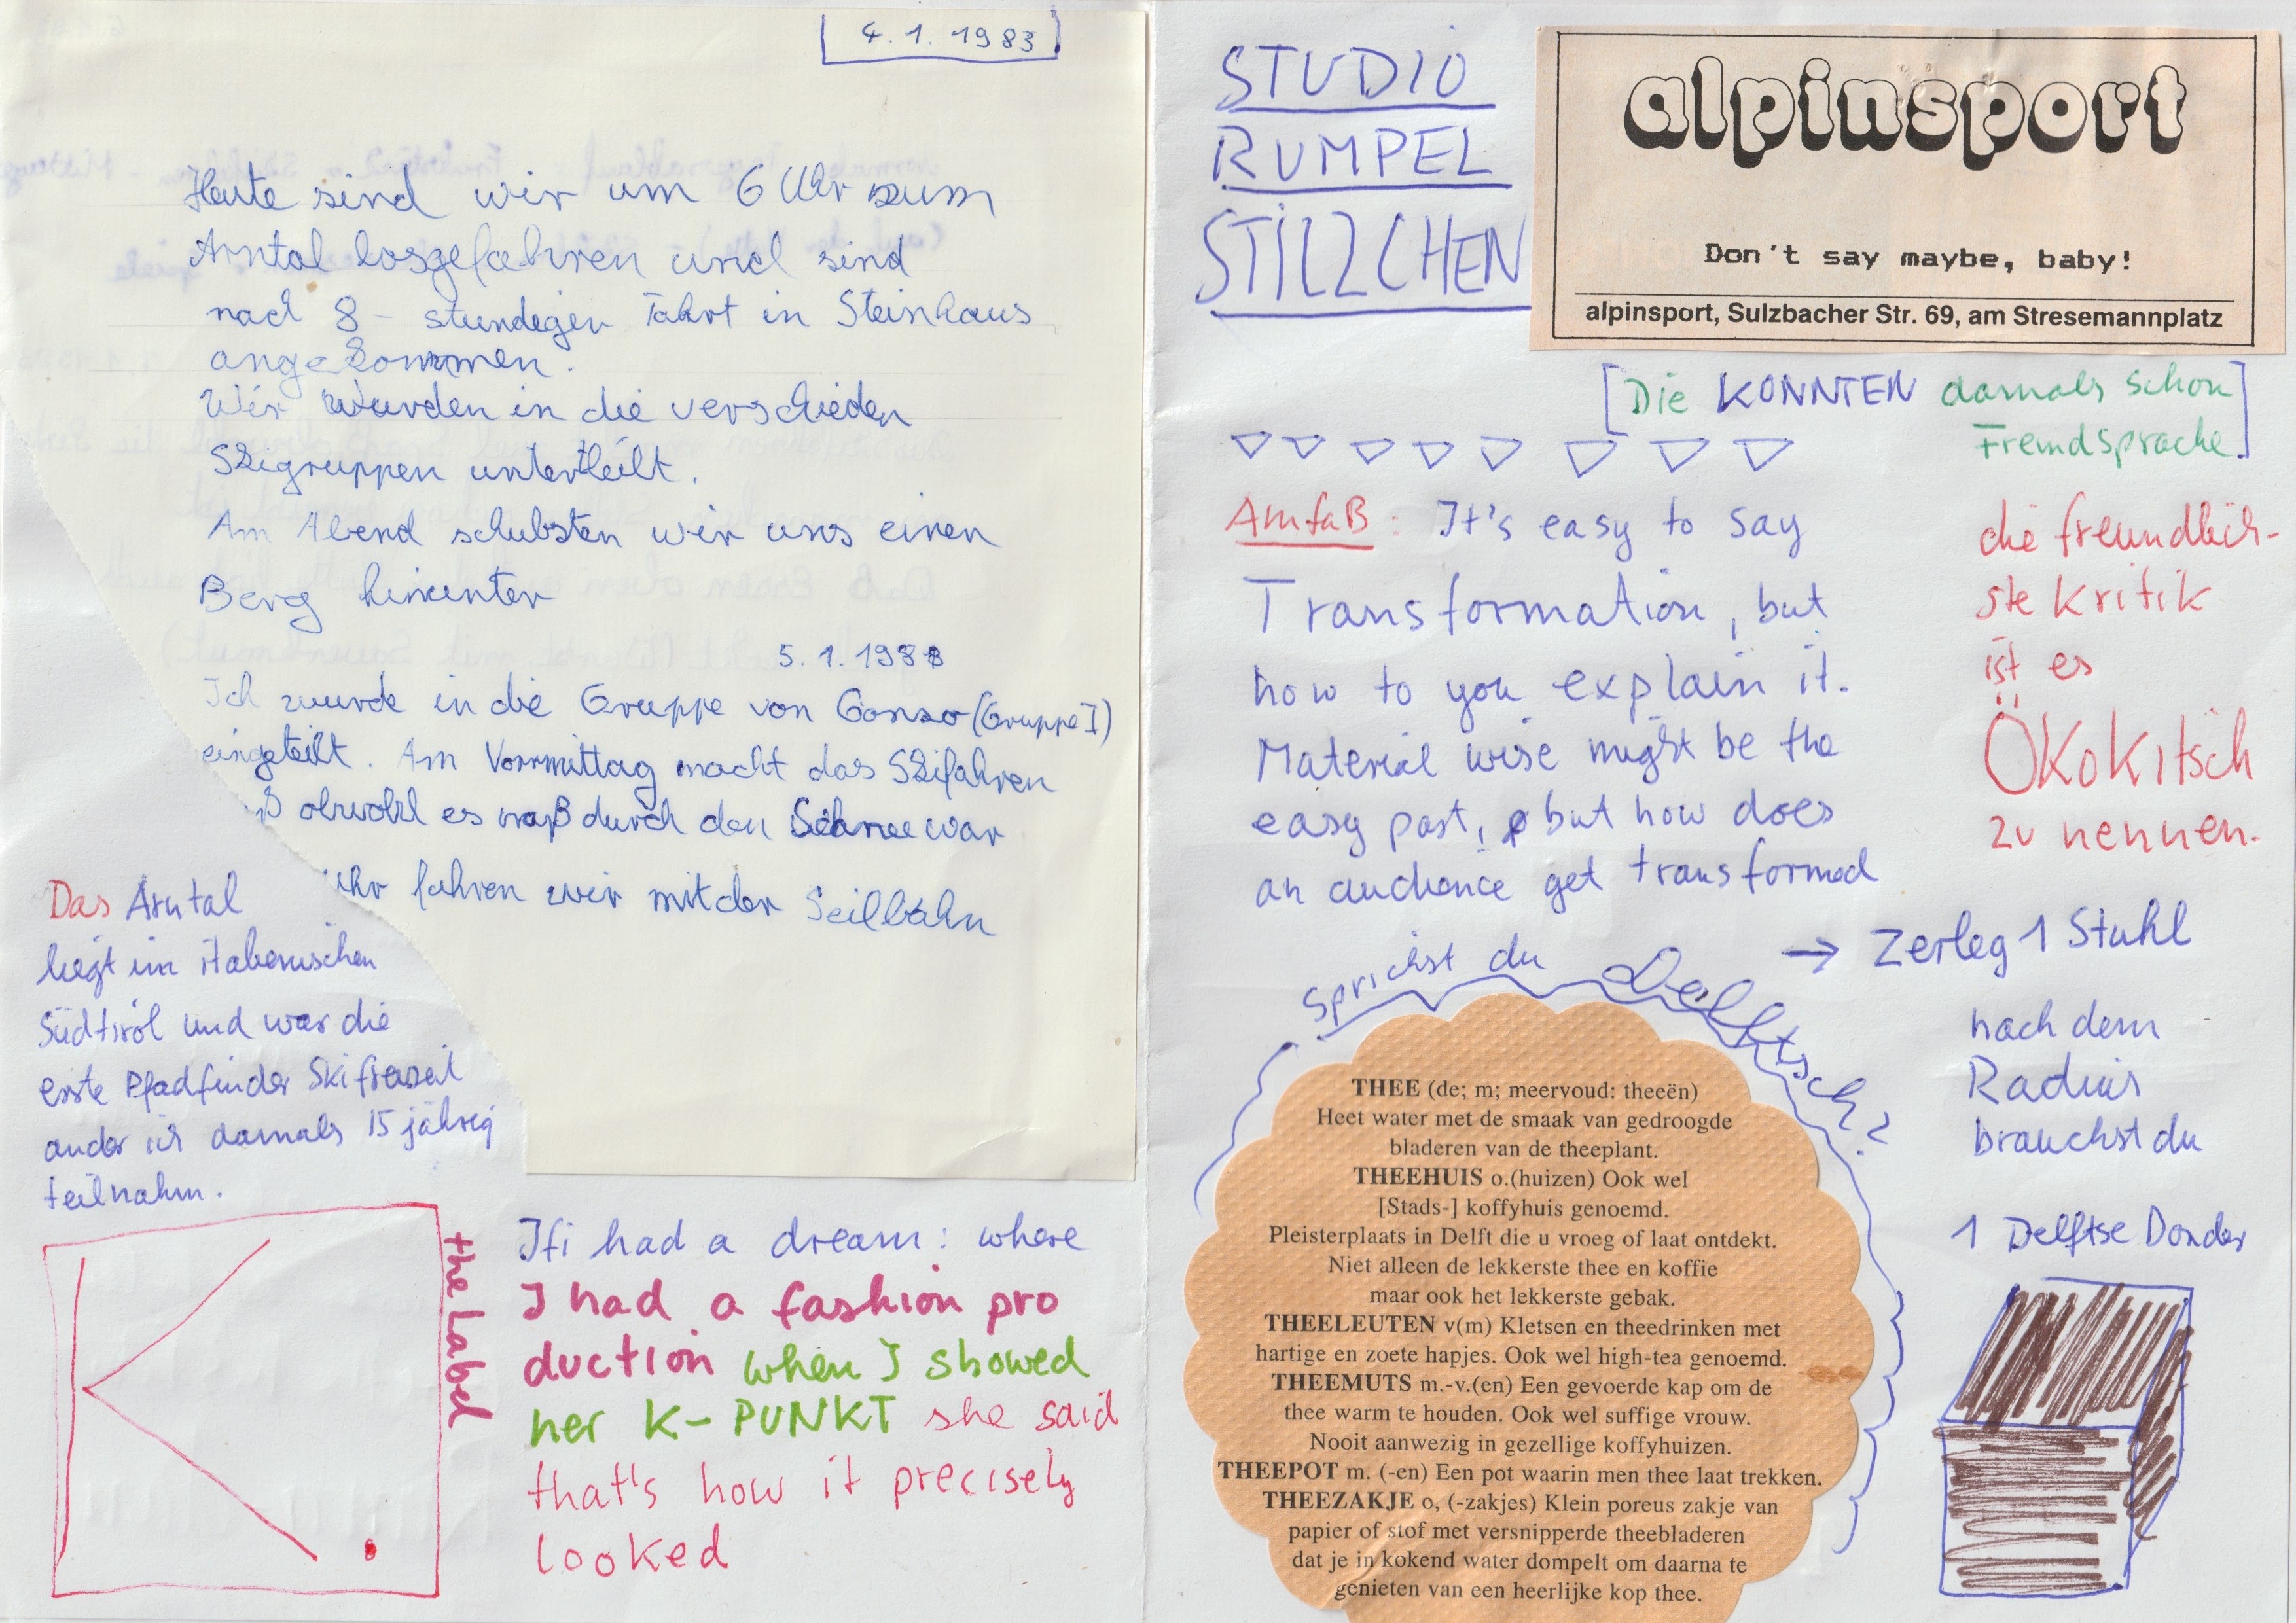 4.1.1983
Heute sind wir um 6 Uhr zum
Arntal losgefahren und sind
nach 8-stundegen Fahrt in Steinhaus
angekommen.
Wir wurden in die verschieden
Skigruppen unterteilt.
Am Abend schubsten wir uns einen
Berg hinunter
5.1.1983
Ich wurde in die Gruppe von Gonzo (Gruppe I)
eingeteilt. Am Vormittag macht das Skifahren
ß obwohl es naß durch den Schnee war
Uhr fahren wir mit der Seilbahn
Das Arntal
liegt im italienischen
Südtirol und war die
erste Pfadfinder Skifreizeit
an der ich damals 15 jährig
teilnahm.
K.
the Label
If i had a dream: where
I had a fashion pro
duction when I showed
her K-PUNKT she said
that's how it precisely
looked
STUDIO
RUMPEL
STILZCHEN
alpinsport
Don't say maybe, baby!
alpinsport, Sulzbacher Str. 69, am Stresemannplatz
[Die KONNTEN damals schon
Fremdsprache.]
AmfaB: It's easy to say
Transformation, but
how to you explain it.
Material wise might be the
easy past, but how does
an audience get transformed
die freundlich-
ste Kritik
ist es
ÖKoKitsch
zu nennen.
→ Zerleg 1 Stuhl
nach dem
Radius
brauchst du
1 Delftse Donder
Sprichst du Delftsch?
THEE (de; m; meervoud: theeën)
Heet water met de smaak van gedroogde
bladeren van de theeplant.
THEEHUIS o.(huizen) Ook wel
[Stads-] koffyhuis genoemd.
Pleisterplaats in Delft die u vroeg of laat ontdekt.
Niet alleen de lekkerste thee en koffie
maar ook het lekkerste gebak.
THEELEUTEN v(m) Kletsen en theedrinken met
hartige en zoete hapjes. Ook wel high-tea genoemd.
THEEMUTS m.-v.(en) Een gevoerde kap om de
thee warm te houden. Ook wel suffige vrouw.
Nooit aanwezig in gezellige koffyhuizen.
THEEPOT m. (-en) Een pot waarin men thee laat trekken.
THEEZAKJE o, (-zakjes) Klein poreus zakje van
papier of stof met versnipperde theebladeren
dat je in kokend water dompelt om daarna te
genieten van een heerlijke kop thee.